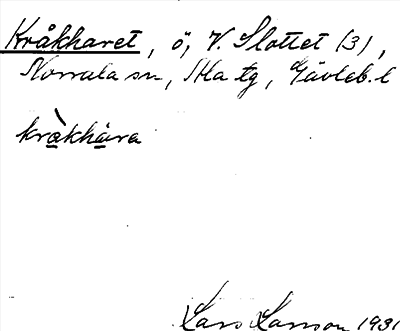 Kråkharet, ö, V. Slottet (3),
Norrala sn, Hla tg, Gävleb. l
kråkhára
Lars Larsson 1931